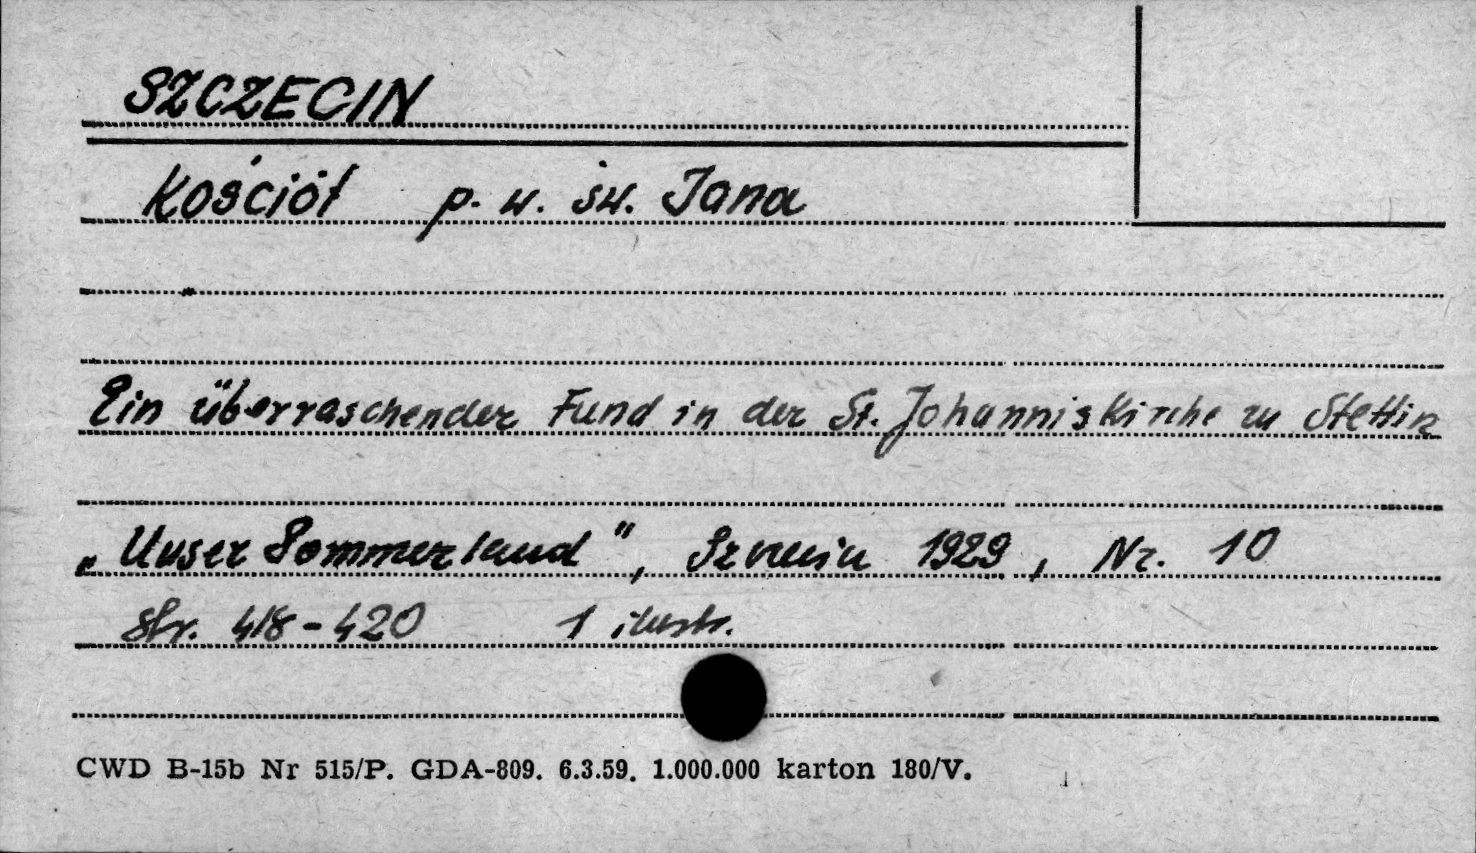 SZCZECIN
Kościół p. w. św. Jana
Ein überraschender Fund in der St. Johanniskirche zu Stettin
„Unser Pommerland", Szczecin 1929, Nr. 10
Str. 418-420 1 ilustr.
CWD B-15b Nr 515/P. GDA-809. 6.3.59. 1.000.000 karton 180/V.